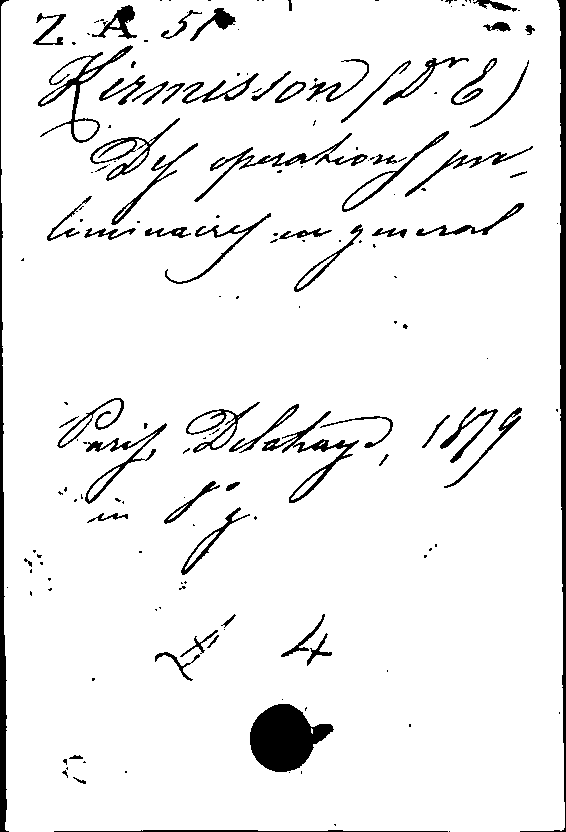 Z. A. 51
Kirmisson (Dr. E)
Des operations pré-
liminaires en general
Paris, Delahaye, 1879
in 8° g.
4